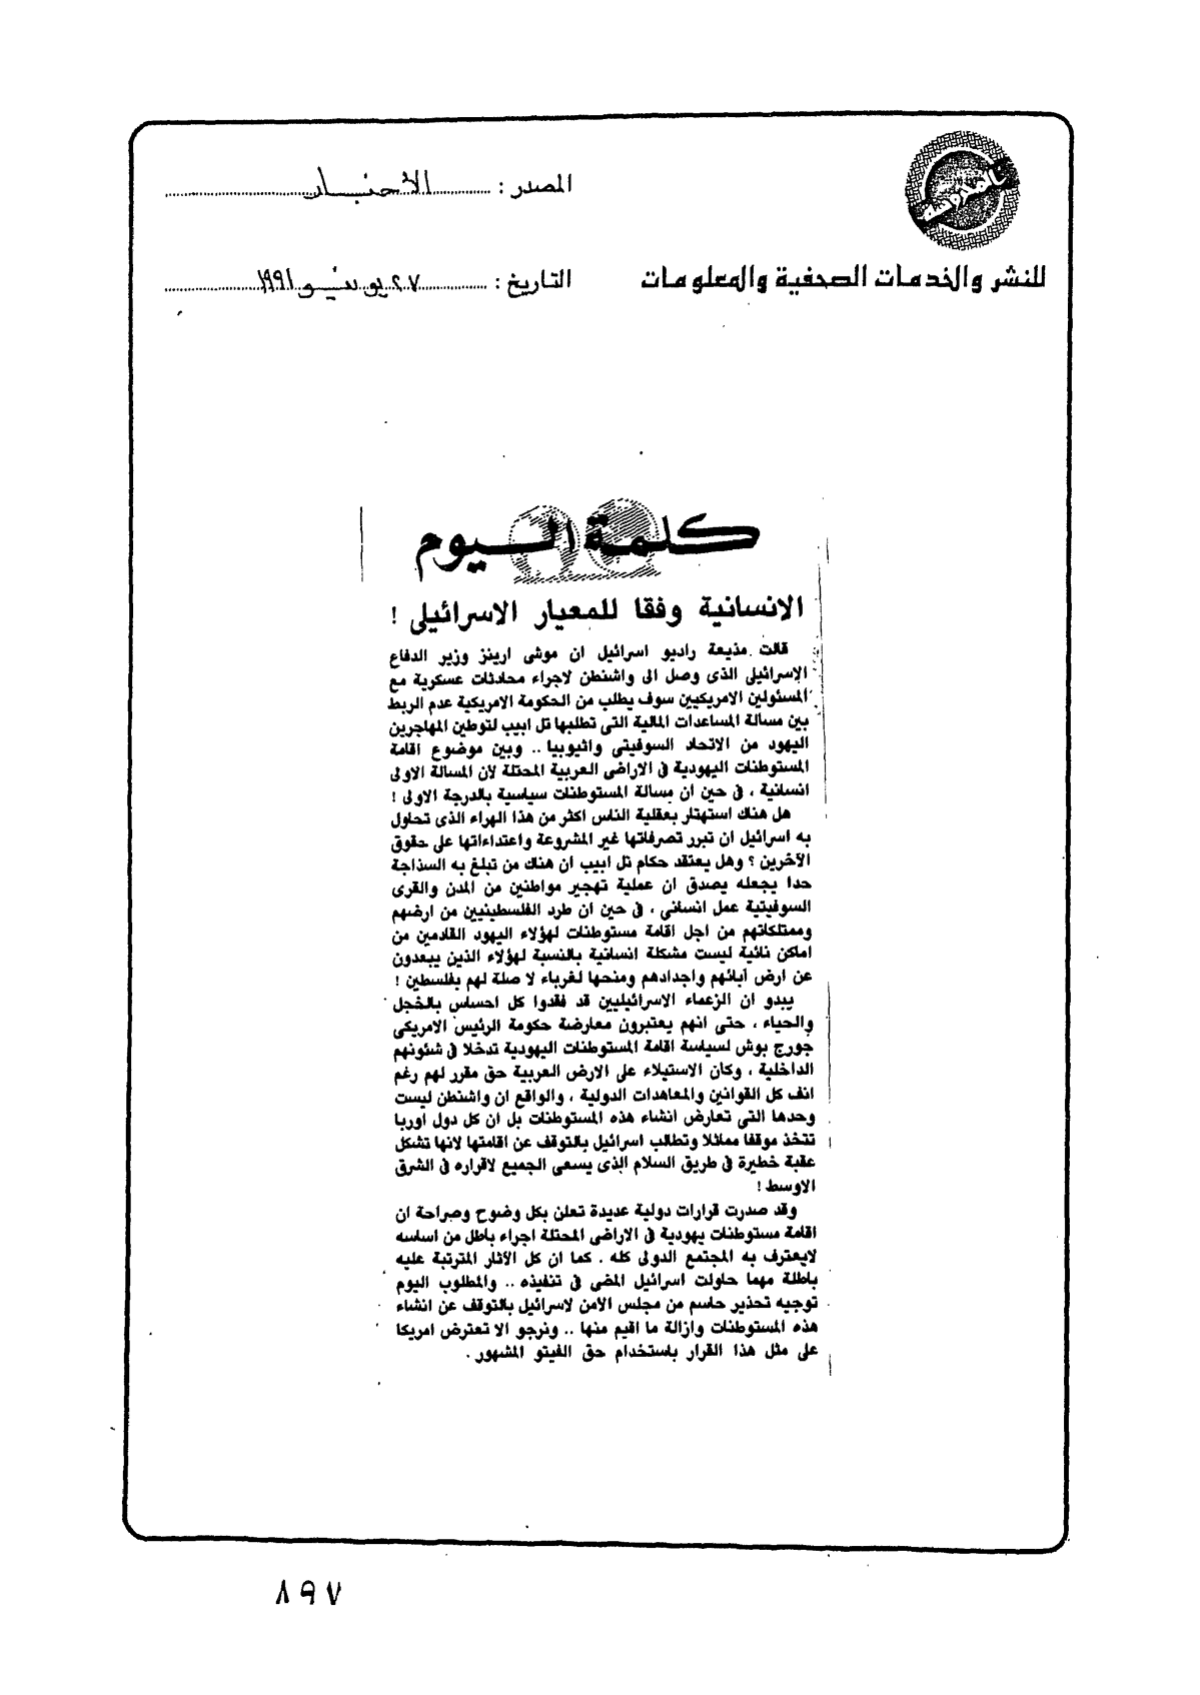 المصدر : الأخبار
للنشر والخدمات الصحفية والمعلومات
التاريخ : ٢٧ يونيو ١٩٩١
كلمة اليوم
الانسانية وفقا للمعيار الاسرائيلى !
قالت مذيعة راديو اسرائيل ان موشى ارينز وزير الدفاع
الإسرائيلى الذى وصل الى واشنطن لاجراء محادثات عسكرية مع
المسئولين الامريكيين سوف يطلب من الحكومة الامريكية عدم الربط
بين مسالة المساعدات المالية التى تطلبها تل ابيب لتوطين المهاجرين
اليهود من الاتحاد السوفيتى واثيوبيا .. وبين موضوع اقامة
المستوطنات اليهودية فى الاراضى العربية المحتلة لأن المسالة الاولى
انسانية ، فى حين ان مسالة المستوطنات سياسية بالدرجة الاولى !
هل هناك استهتار بعقلية الناس اكثر من هذا الهراء الذى تحاول
به اسرائيل ان تبرر تصرفاتها غير المشروعة واعتداءاتها على حقوق
الآخرين ؟ وهل يعتقد حكام تل ابيب ان هناك من تبلغ به السذاجة
حدا يجعله يصدق ان عملية تهجير مواطنين من المدن والقرى
السوفيتية عمل انسانى ، فى حين ان طرد الفلسطينيين من ارضهم
وممتلكاتهم من اجل اقامة مستوطنات لهؤلاء اليهود القادمين من
اماكن نائية ليست مشكلة انسانية بالنسبة لهؤلاء الذين يبعدون
عن ارض آبائهم واجدادهم ومنحها لغرباء لا صلة لهم بفلسطين !
يبدو ان الزعماء الاسرائيليين قد فقدوا كل احساس بالخجل
والحياء ، حتى انهم يعتبرون معارضة حكومة الرئيس الامريكى
جورج بوش لسياسة اقامة المستوطنات اليهودية تدخلا فى شئونهم
الداخلية ، وكان الاستيلاء على الارض العربية حق مقرر لهم رغم
انف كل القوانين والمعاهدات الدولية ، والواقع ان واشنطن ليست
وحدها التى تعارض انشاء هذه المستوطنات بل ان كل دول اوربا
تتخذ موقفا مماثلا وتطالب اسرائيل بالتوقف عن اقامتها لانها تشكل
عقبة خطيرة فى طريق السلام الذى يسعى الجميع لاقراره فى الشرق
الاوسط !
وقد صدرت قرارات دولية عديدة تعلن بكل وضوح وصراحة ان
اقامة مستوطنات يهودية فى الاراضى المحتلة اجراء باطل من اساسه
لايعترف به المجتمع الدولى كله . كما ان كل الآثار المترتبة عليه
باطلة مهما حاولت اسرائيل المضى فى تنفيذه .. والمطلوب اليوم
توجيه تحذير حاسم من مجلس الامن لاسرائيل بالتوقف عن انشاء
هذه المستوطنات وازالة ما اقيم منها .. ونرجو الا تعترض امريكا
على مثل هذا القرار باستخدام حق الفيتو المشهور .
٨٩٧